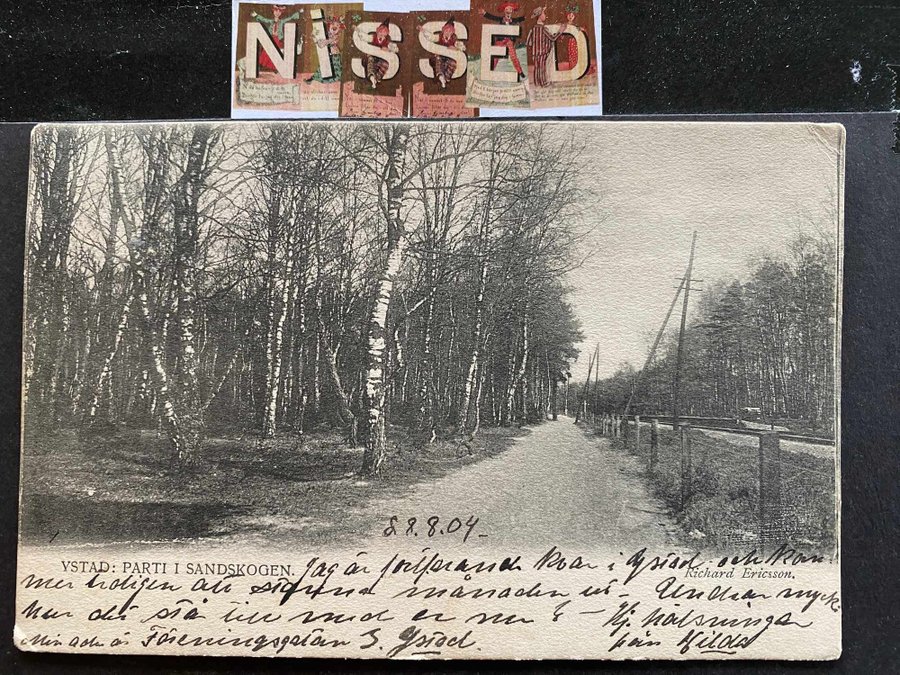 NISSED
8.8.04.
YSTAD: PARTI I SANDSKOGEN.
Richard Ericsson.
Jag är fortfarande kvar i Ystad och kom-
mer troligen att stanna månaden ut. Undrar mycket
hur det står till med er nu? - Hj. hälsningar
Min adr. är Föreningsgatan 3. Ystad.
från Hilda